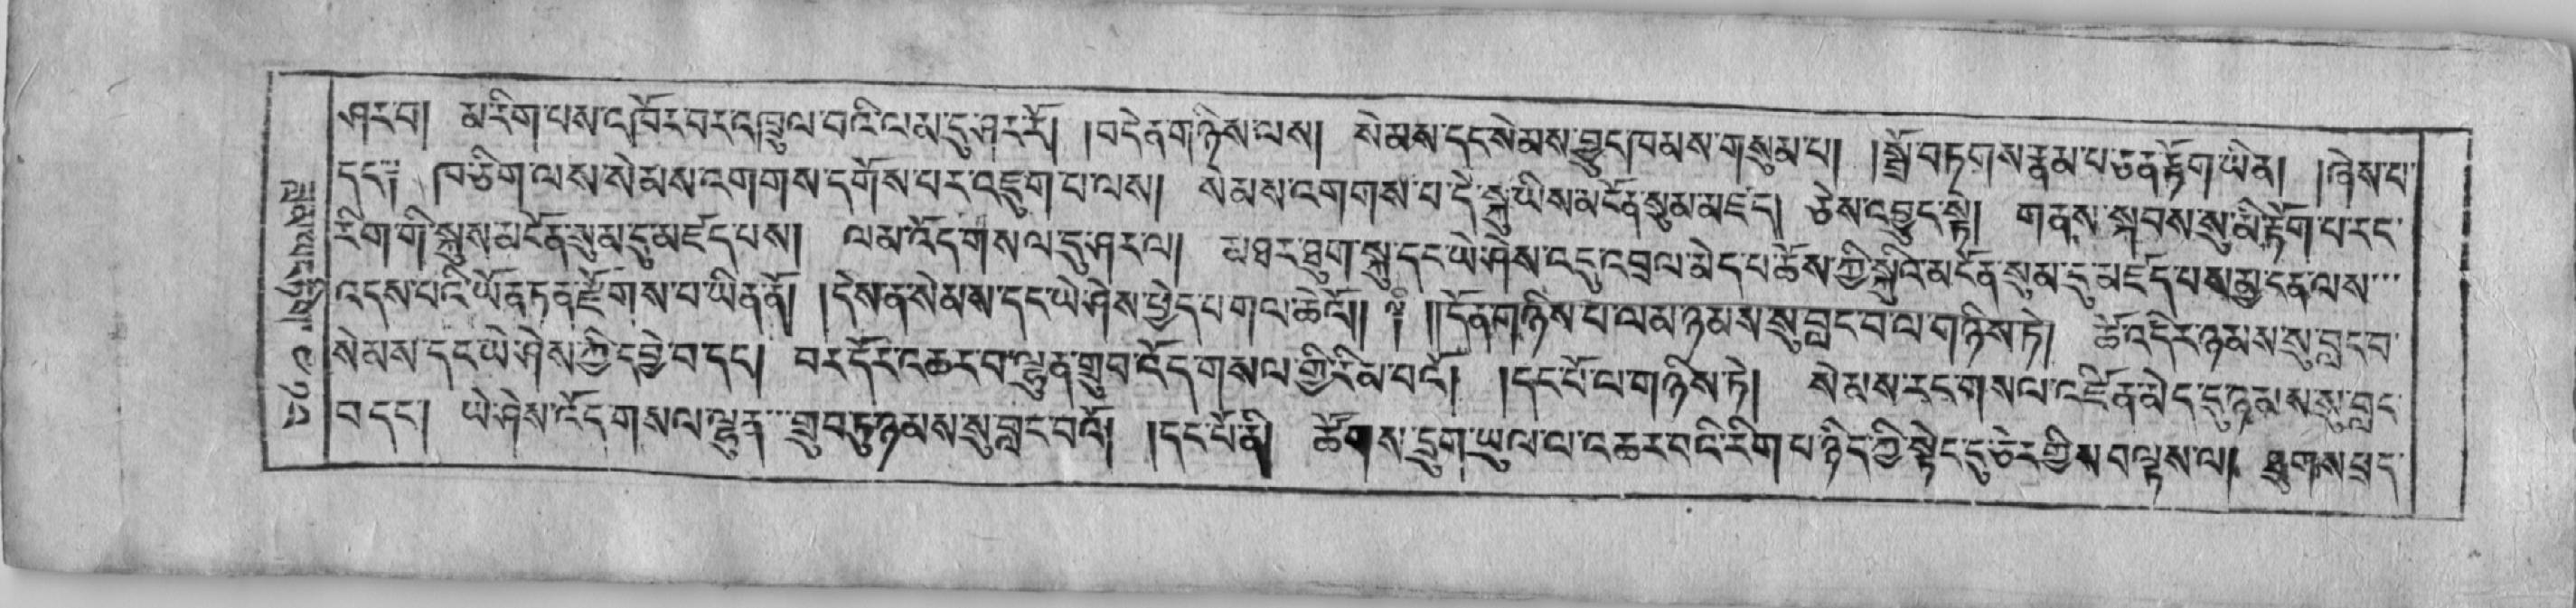 ཤར་བ། མ་རིག་པས་འཁོར་བར་འཁྲུལ་བའི་ལམ་དུ་ཤར་རོ། །བདེན་གཉིས་ལས། སེམས་དང་སེམས་བྱུང་ཁམས་གསུམ་པ། །སྒྲོ་བཏགས་རྣམ་པ་ཅན་རྟོག་ཡིན། །ཞེས་པ་
དང༔ ཁ་ཅིག་ལས་སེམས་འགགས་དགོས་པར་འཇུག་པ་ལས། སེམས་འགགས་པ་དེ་སྐུ་ཡིས་མངོན་སུམ་མཛད། ཅེས་འབྱུང་སྟེ། གནས་སྐབས་སུ་མི་རྟོག་པ་རང་
རིག་གི་སྐུས་མངོན་སུམ་དུ་མཛོད་པས། ལམ་འོད་གསལ་དུ་ཤར་ལ། མཐར་ཐུག་སྐུ་དང་ཡེ་ཤེས་འདུ་འབྲལ་མེད་པ་ཆོས་ཀྱི་སྐུའི་མངོན་སུམ་དུ་མཛོད་པས་མྱ་ངན་ལས་
འདས་པའི་ཡོན་ཏན་རྫོགས་པ་ཡིན་ནོ། །དེས་ན་སེམས་དང་ཡེ་ཤེས་ཕྱེད་པ་གལ་ཆེའོ།། །།དོན་གཉིས་པ་ལམ་ཉམས་སུ་བླང་བ་ལ་གཉིས་ཏེ། ཚེ་འདིར་ཉམས་སུ་བླང་བ་
སེམས་དང་ཡེ་ཤེས་ཀྱི་དབྱེ་བ་དང། བར་དོར་འཆར་བ་ལྷུན་གྲུབ་འོད་གསལ་གྱི་རིམ་པའོ། །དང་པོ་ལ་གཉིས་ཏེ། སེམས་རང་གསལ་འཛིན་མེད་དུ་ཉམས་སུ་བླང་
བ་དང་། ཡེ་ཤེས་འོད་གསལ་ལྷུན་གྲུབ་ཏུ་ཉམས་སུ་བླང་བའོ། །དང་པོ་ནི། ཚོགས་དྲུག་ཡུལ་ལ་འཆར་བའི་རིག་པ་ཉིད་ཀྱི་སྟེང་དུ་ཅེར་གྱིས་བལྟས་ལ། ཐུགས་ཕྲད་